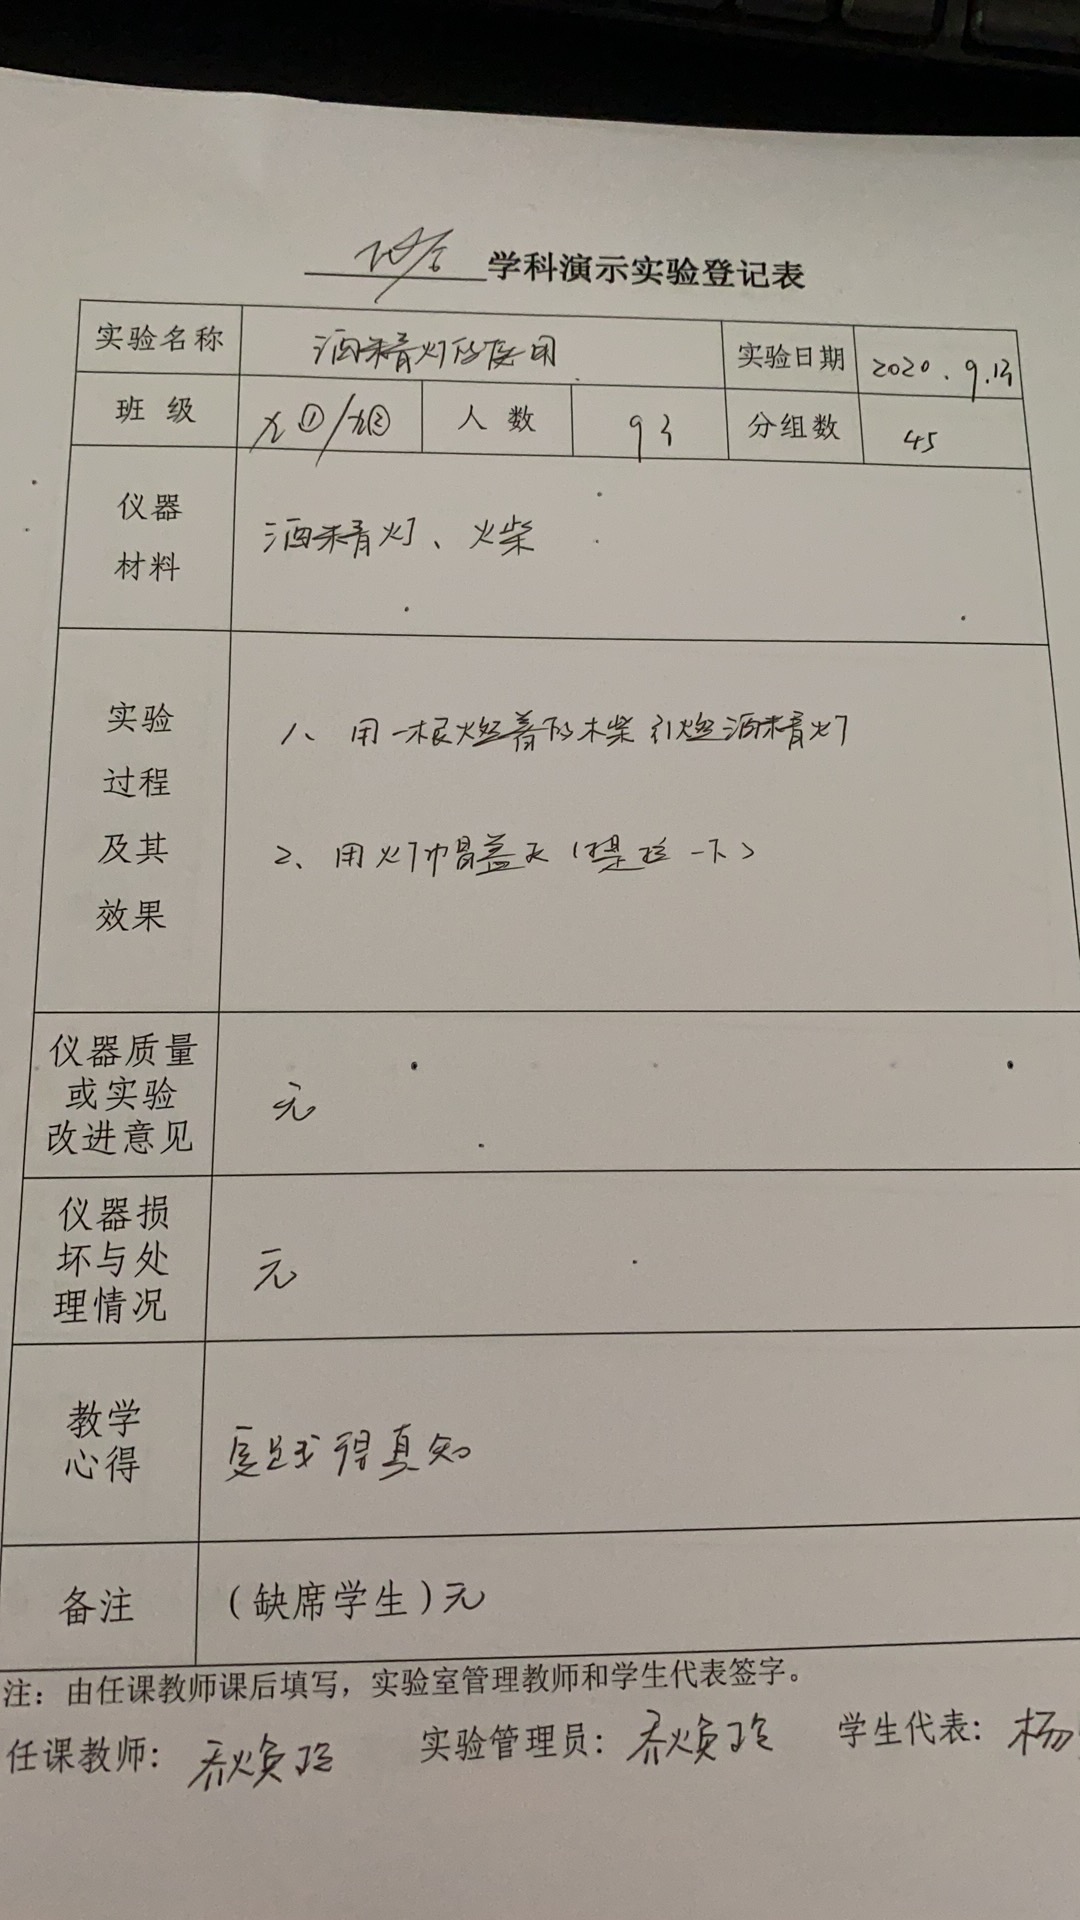 学科演示实验登记表
实验名称 酒精灯的使用 实验日期 2020.9.13
班级 九①/九② 人数 93 分组数 45
仪器
材料
酒精灯、火柴
实验
过程
及其
效果
1、用一根燃着的木柴引燃酒精灯
2、用灯帽盖灭(提拉一下)
仪器质量
或实验
改进意见
无
仪器损
坏与处
理情况
无
教学
心得
实践得真知
备注 (缺席学生)无
注：由任课教师课后填写，实验室管理教师和学生代表签字。
任课教师：乔焕玲 实验管理员：乔焕玲 学生代表：杨